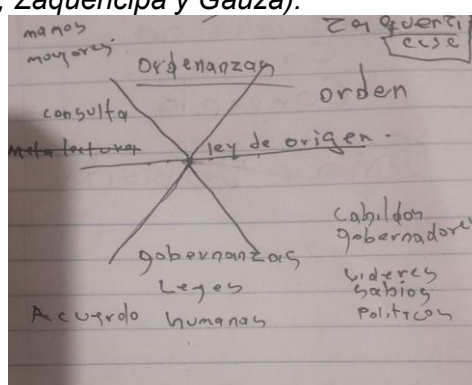 , Zaquencipa y Gauza).
manos
mayores.
Zaquenci
case
ordenanzas
orden
consulta
ley de origen.
Cabildos
gobernadores
gobernanzas
Leyes
humanas
Acuerdo
Lideres
sabios
Politicos